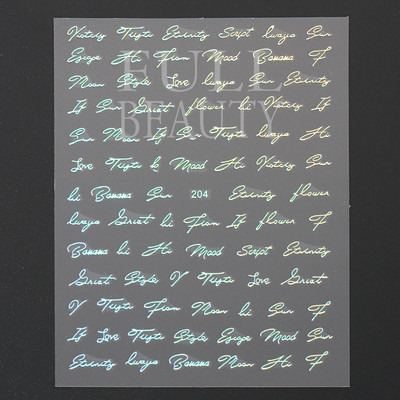 Victory Tiista Eternity Script lwaya Sun
Escape Hi Fiom Mood Banana F
Moon Style Love lwaya Sun Eternity
If Sun Great flower hi Victory If
Sun Moon If Sun Tiista lwaya Hi
Love Tiista h Mood Hi Victory
hi Banana Sun 204 Eternity flower
lwaya Great hi Fiom If flower F
Banana hi Hi Mood Script Eternity
Great Style V Tiista Love Great
V Tiista Fiom Moon hi Sun F
If Love Tiista Style Escape Mood Sun
Eternity lwaya Banana Moon Hi F
FULL
BEAUTY